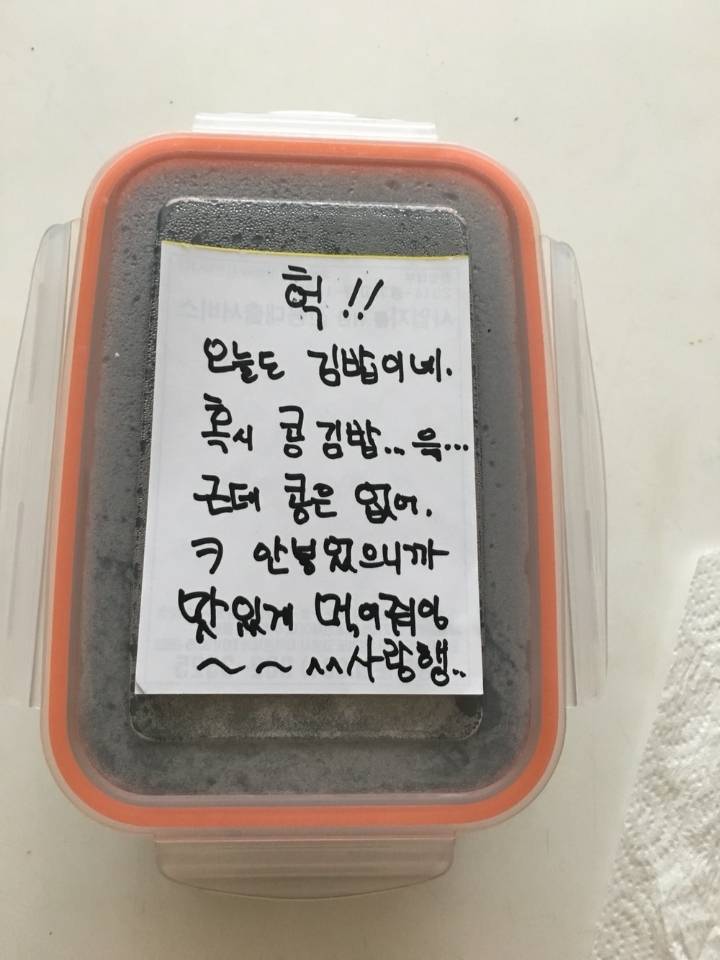 헉!!
오늘도 김밥이네.
혹시 콩김밥.. 윽...
근데 콩은 없어.
ㅋ 안넣었으니까
맛있게 먹어줘잉
~ ~ ^^사랑행..